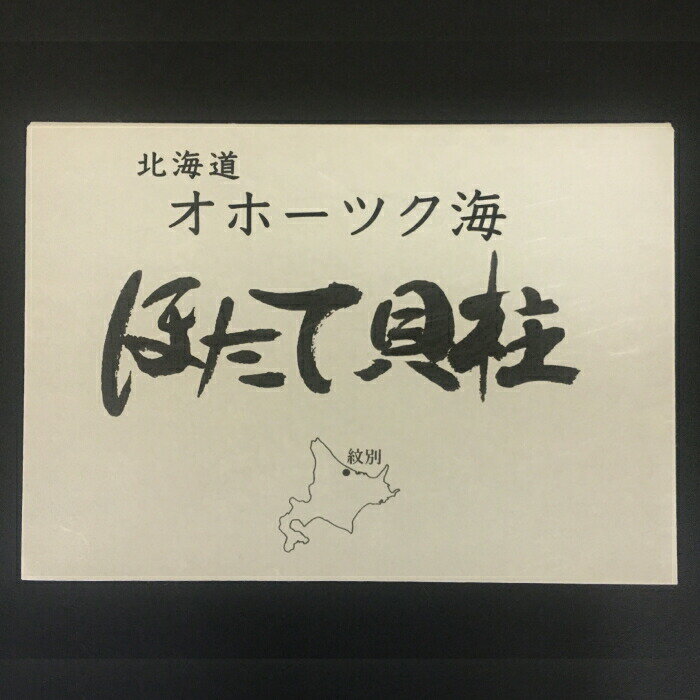 北海道
オホーツク海
ほたて貝柱
紋別